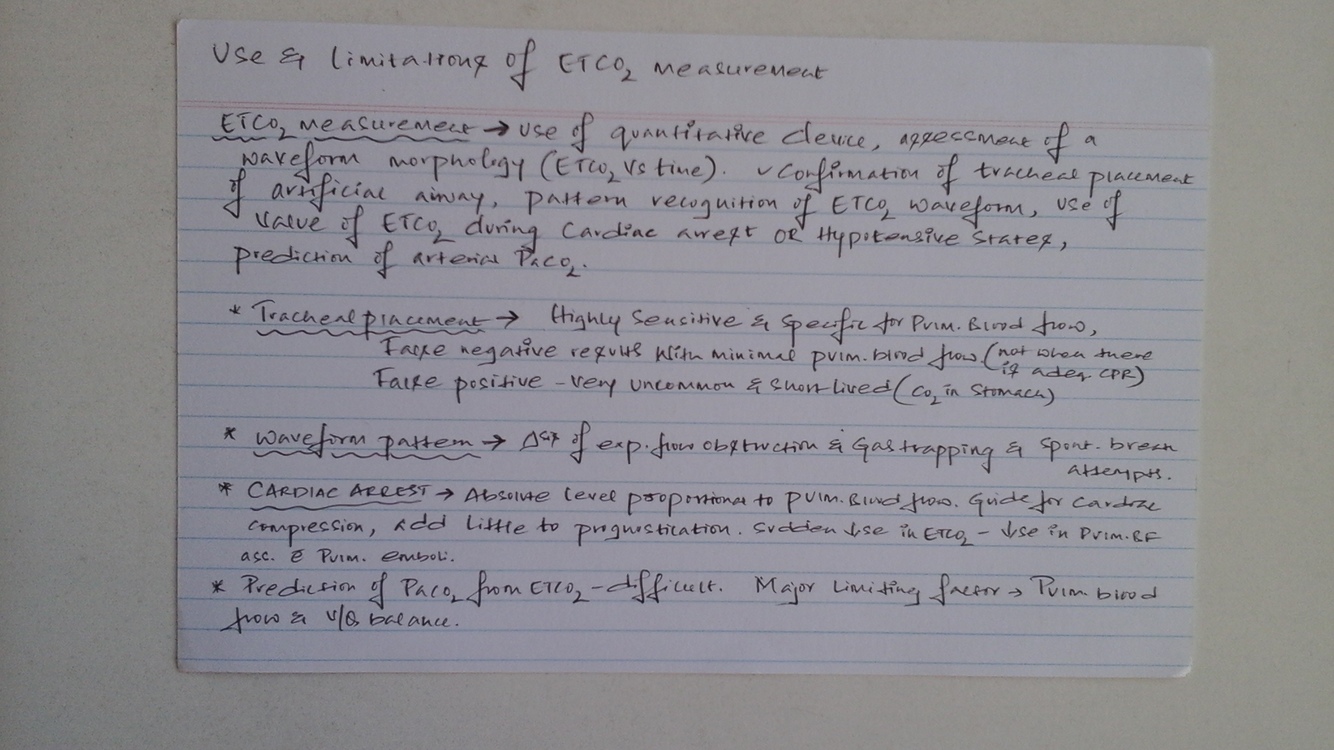 Use & limitations of ETCO₂ measurement
ETCO₂ measurement → use of quantitative device, assessment of a
waveform morphology (ETCO₂ Vs time). ✓ Confirmation of tracheal placement
of artificial airway, pattern recognition of ETCO₂ waveform, use of
value of ETCO₂ during Cardiac arrest OR Hypotensive States,
prediction of arterial PaCO₂.
* Tracheal placement → Highly Sensitive & Specific for Pulm. Blood flow,
False negative results with minimal pulm. blood flow (not when there
is adeq. CPR)
False positive - very uncommon & short lived (CO₂ in Stomach)
* Waveform pattern → Δsis of exp. flow obstruction & Gas trapping & Spont. breath
attempts.
* CARDIAC ARREST → Absolute level proportional to pulm. Blood flow. Guide for Cardiac
compression, add little to prognostication. Sudden ↓se in ETCO₂ - ↓se in Pulm. BF
asc. c̄ Pulm. emboli.
* Prediction of PaCO₂ from ETCO₂ - difficult. Major limiting factor → Pulm. blood
flow & V/Q balance.